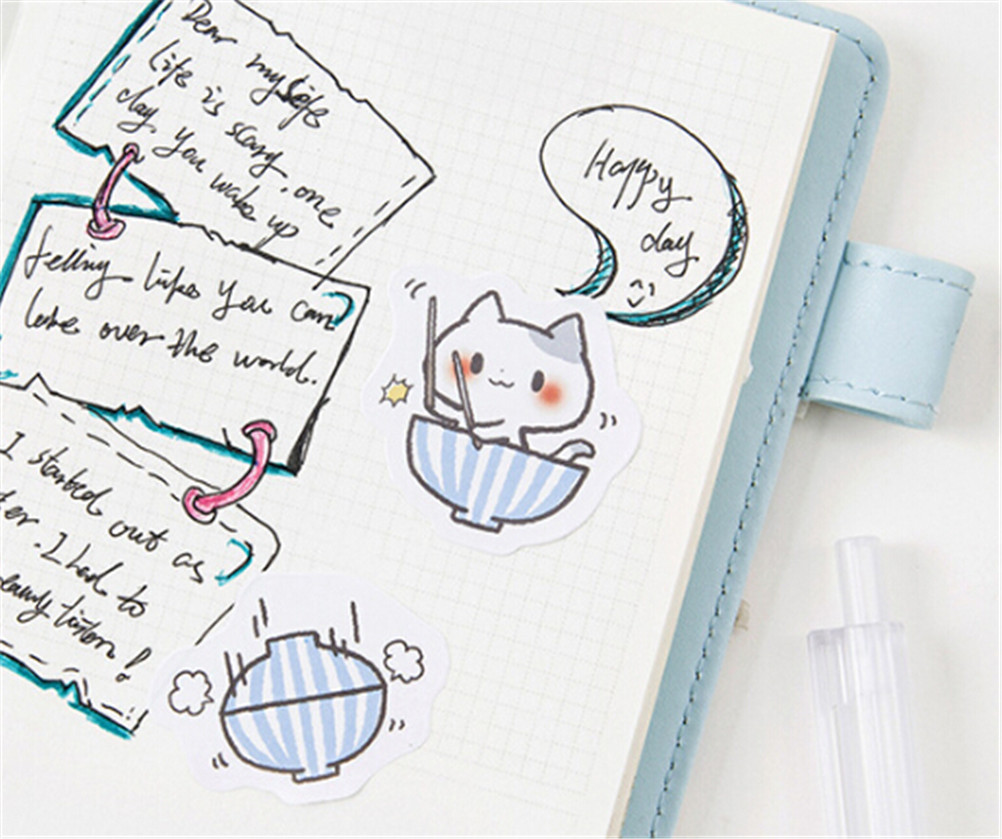 Dear myself
Life is scary, one
day you wake up
felling like you can
take over the world.
I started out as
. I had to
listen!
Happy
day